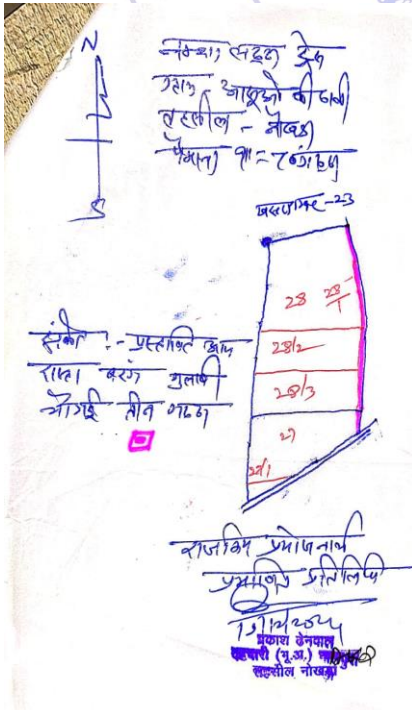 N
S
नक्शा, लट्ठा ट्रेस
ग्राम - की ढाणी
तहसील - नोखड़ा
पैमाना
खसरा नम्बर - 23
28 28/1
28/2
28/3
27
22/1
संकेत :- प्रस्तावित आम
रास्ता बरंग गुलाबी
चौड़ाई तीन गट्ठा
राजकीय प्रयोजनार्थ
प्रमाणित प्रतिलिपि
प्रकाश बेनवाल
पटवारी (भू.अ.)
तहसील नोखड़ा